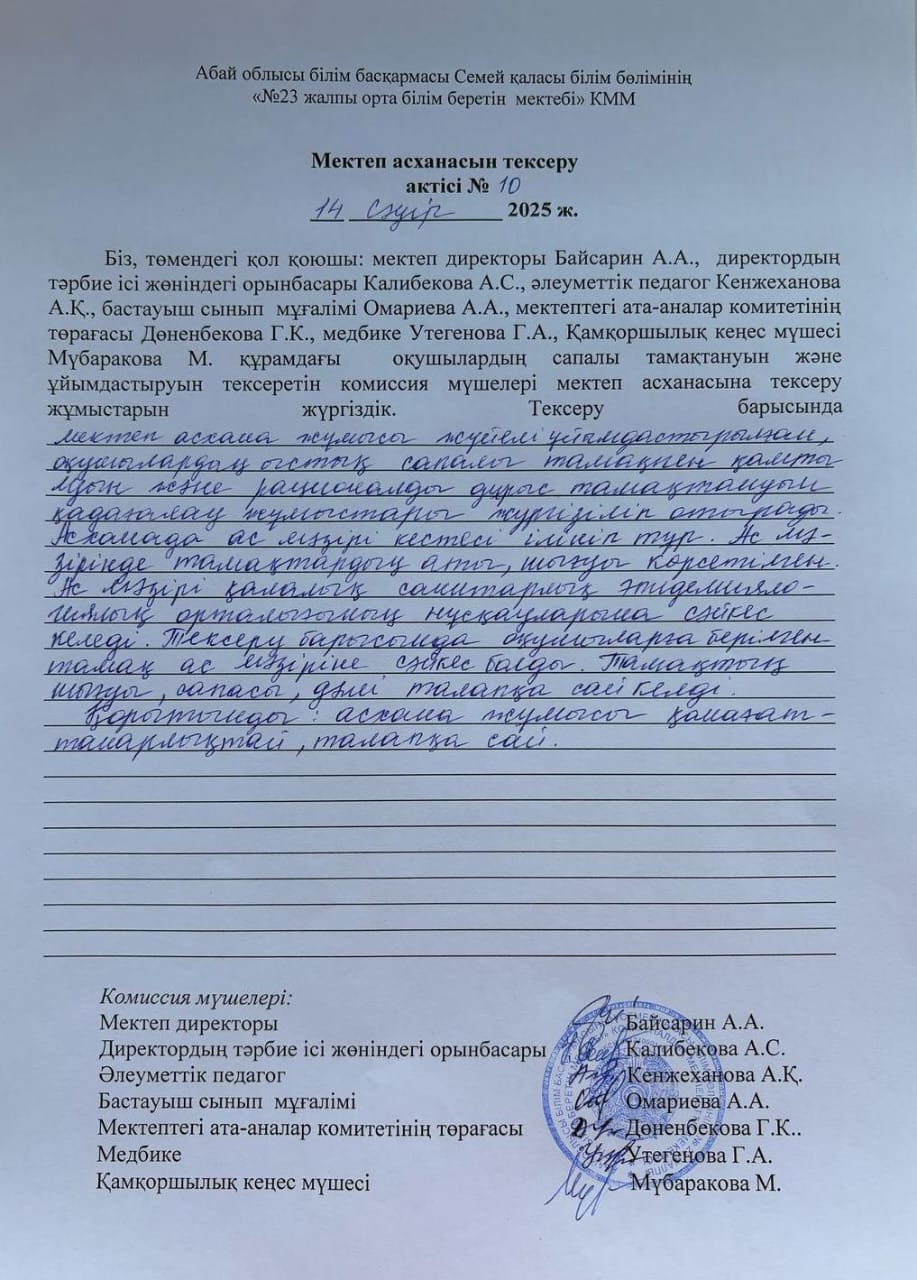 Абай облысы білім басқармасы Семей қаласы білім бөлімінің
«№23 жалпы орта білім беретін мектебі» КММ
Мектеп асханасын тексеру
актісі № 10
14 сәуір 2025 ж.
Біз, төмендегі қол қоюшы: мектеп директоры Байсарин А.А., директордың
тәрбие ісі жөніндегі орынбасары Калибекова А.С., әлеуметтік педагог Кенжеханова
А.Қ., бастауыш сынып мұғалімі Омариева А.А., мектептегі ата-аналар комитетінің
төрағасы Дөненбекова Г.К., медбике Утегенова Г.А., Қамқоршылық кеңес мүшесі
Мүбаракова М. құрамдағы оқушылардың сапалы тамақтануын және
ұйымдастыруын тексеретін комиссия мүшелері мектеп асханасына тексеру
жұмыстарын жүргіздік. Тексеру барысында
мектеп асхана жұмысы жүйелі ұйымдастырылған,
оқушылардың ыстық сапалы тамақпен қамты
луын және рационалды дұрыс тамақтануын
қадағалау жұмыстары жүргізіліп отырады.
Асханада ас мәзірі кестесі ілініп тұр. Ас мә-
зірінде тамақтардың аты, шығуы көрсетілген.
Ас мәзірі қалалық санитарлық эпидемияло-
гиялық орталығының нұсқауларына сәйкес
келеді. Тексеру барысында оқушыларға берілген
тамақ ас мәзіріне сәйкес болды. Тамақтың
шығуы, сапасы, дәмі талапқа сай келді.
Қорытынды: асхана жұмысы қанағат-
танарлықтай, талапқа сай.
Комиссия мүшелері:
Мектеп директоры Байсарин А.А.
Директордың тәрбие ісі жөніндегі орынбасары Калибекова А.С.
Әлеуметтік педагог Кенжеханова А.Қ.
Бастауыш сынып мұғалімі Омариева А.А.
Мектептегі ата-аналар комитетінің төрағасы Дөненбекова Г.К..
Медбике Утегенова Г.А.
Қамқоршылық кеңес мүшесі Мүбаракова М.